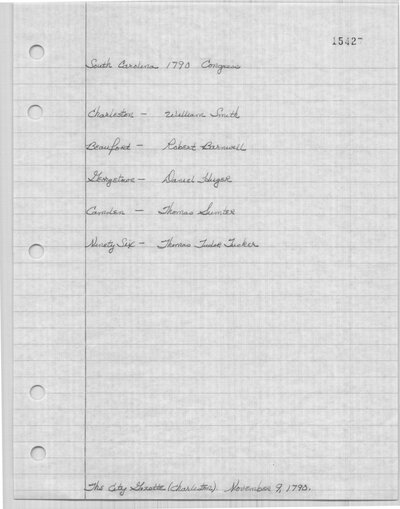 15427
South Carolina 1790 Congress
Charleston - William Smith
Beaufort - Robert Barnwell
Georgetown - Daniel Huger
Camden - Thomas Sumter
Ninety Six - Thomas Tudor Tucker
The City Gazette (Charleston). November 9, 1790.